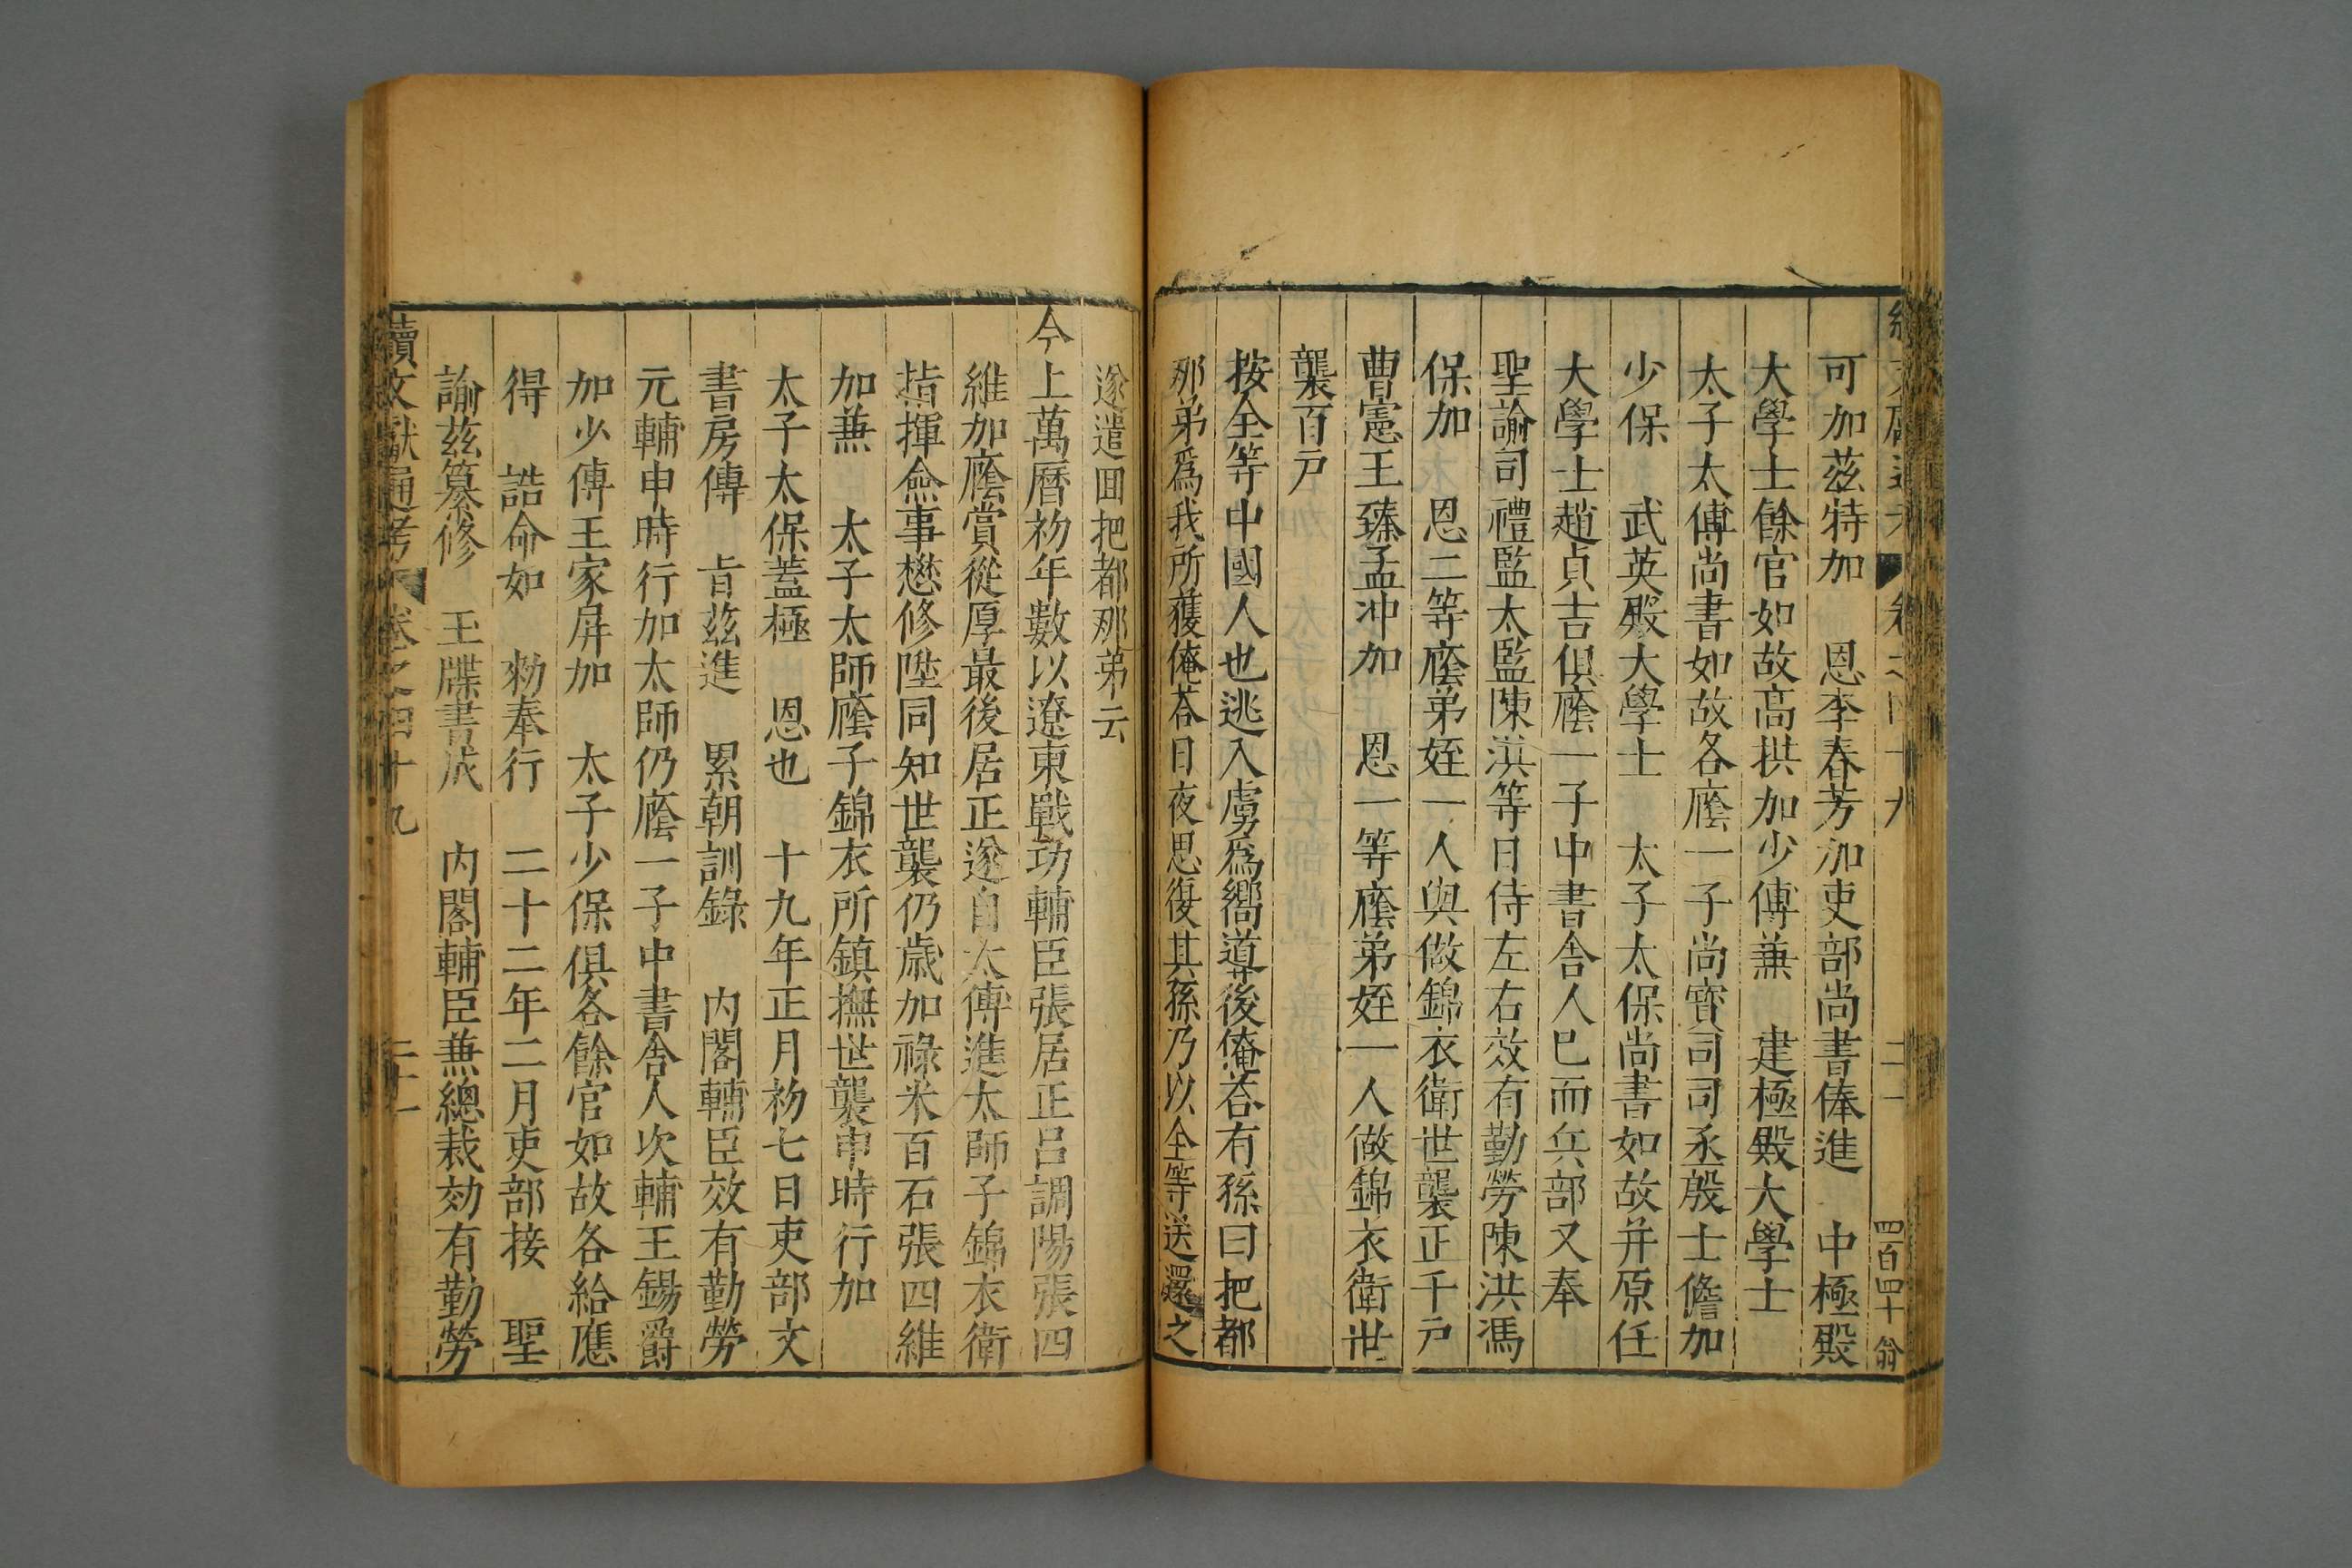 可加茲特加 恩李春芳加吏部尚書俸進 中極殿
大學士餘官如故高拱加少傅兼 建極殿大學士
太子太傅尚書如故各廕一子尚寶司司丞殷士儋加
少保 武英殿大學士 太子太保尚書如故并原任
大學士趙貞吉俱廕一子中書舍人巳而兵部又奉
聖諭司禮監太監陳洪等日侍左右效有勤勞陳洪馮
保加 恩二等廕弟姪一人與做錦衣衛世襲正千戸
曹憲王臻孟冲加 恩一等廕弟姪一人做錦衣衛世
襲百戸
按全等中國人也逃入虜爲嚮導後俺荅有孫曰把都
那弟爲我所獲俺荅日夜思復其孫乃以全等送還之
遂遣囬把都那弟云
今上萬曆初年數以遼東戰功輔臣張居正呂調陽張四
維加廕賞從厚最後居正遂自太傅進太師子錦衣衛
指揮僉事懋修陞同知世襲仍歲加祿米百石張四維
加兼 太子太師廕子錦衣所鎮撫世襲申時行加
太子太保蓋極 恩也 十九年正月初七日吏部文
書房傳 旨茲進 累朝訓錄 内閣輔臣效有勤勞
元輔申時行加太師仍廕一子中書舍人次輔王錫爵
加少傅王家屏加 太子少保俱各餘官如故各給應
得 誥命如 勑奉行 二十二年二月吏部接 聖
諭茲纂修 玉牒書成 内閣輔臣兼總裁効有勤勞
續文獻通考 卷之四十九 二十一
四百四十 翁